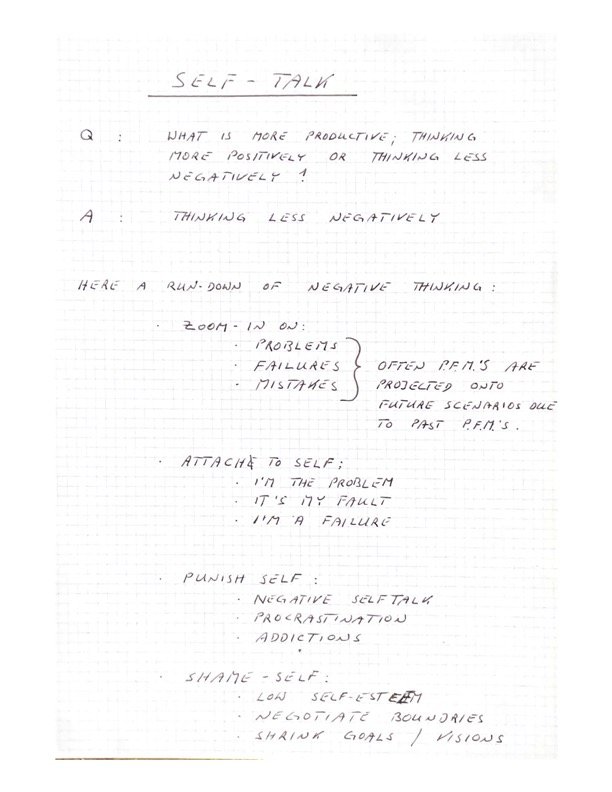 SELF - TALK
Q : WHAT IS MORE PRODUCTIVE; THINKING
MORE POSITIVELY OR THINKING LESS
NEGATIVELY ?
A : THINKING LESS NEGATIVELY
HERE A RUN-DOWN OF NEGATIVE THINKING :
· ZOOM-IN ON:
· PROBLEMS
· FAILURES
· MISTAKES
OFTEN P.F.M.'S ARE
PROJECTED ONTO
FUTURE SCENARIOS DUE
TO PAST P.F.M.'S.
· ATTACH TO SELF;
· I'M THE PROBLEM
· IT'S MY FAULT
· I'M A FAILURE
· PUNISH SELF :
· NEGATIVE SELFTALK
· PROCRASTINATION
· ADDICTIONS
· SHAME-SELF :
· LOW SELF-ESTEEM
· NEGOTIATE BOUNDRIES
· SHRINK GOALS / VISIONS